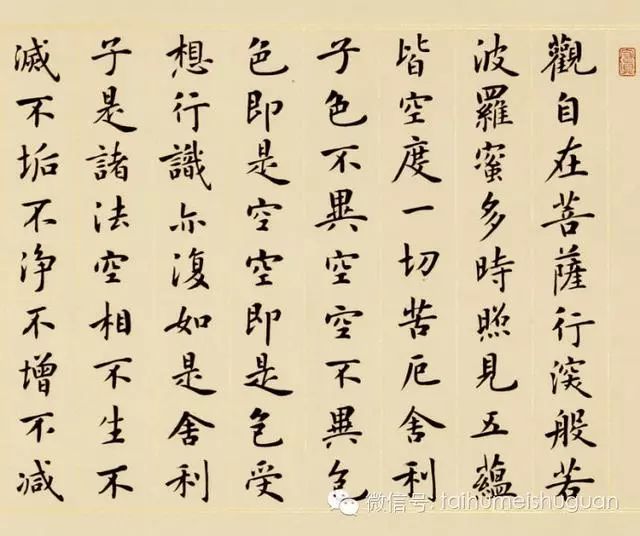 觀自在菩薩行深般若
波羅蜜多時照見五蘊
皆空度一切苦厄舍利
子色不異空空不異色
色即是空空即是色受
想行識亦復如是舍利
子是諸法空相不生不
滅不垢不淨不增不減
微信号: taihumeishuguan